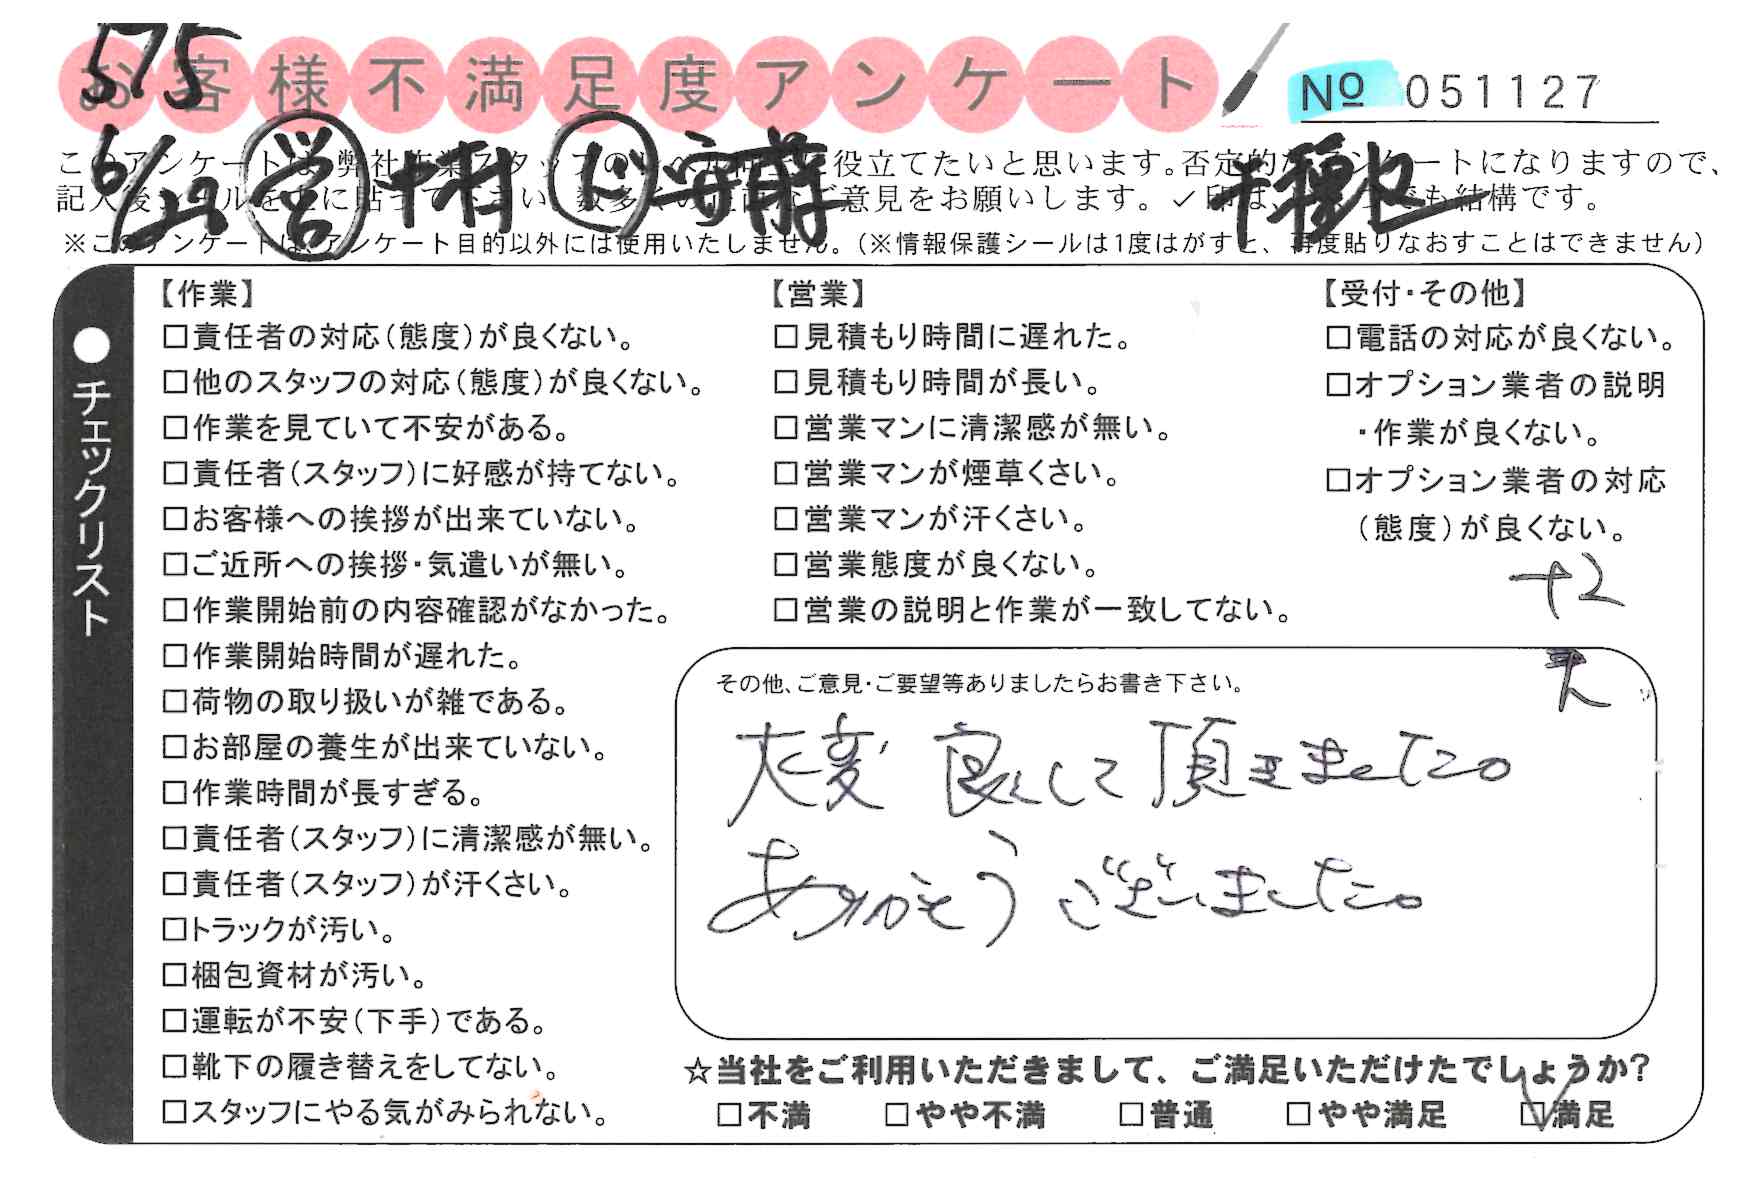 575
お客様不満足度アンケート
№ 051127
6/29 営 中村 ド 安前 十種也
このアンケートは、弊社作業スタッフのレベル向上に役立てたいと思います。否定的なアンケートになりますので、
記入後シールを上に貼って下さい。数多くの正直なご意見をお願いします。✓印は、いくつでも結構です。
※このアンケートは、アンケート目的以外には使用いたしません。(※情報保護シールは1度はがすと、再度貼りなおすことはできません)
●チェックリスト
【作業】
□責任者の対応(態度)が良くない。
□他のスタッフの対応(態度)が良くない。
□作業を見ていて不安がある。
□責任者(スタッフ)に好感が持てない。
□お客様への挨拶が出来ていない。
□ご近所への挨拶・気遣いが無い。
□作業開始前の内容確認がなかった。
□作業開始時間が遅れた。
□荷物の取り扱いが雑である。
□お部屋の養生が出来ていない。
□作業時間が長すぎる。
□責任者(スタッフ)に清潔感が無い。
□責任者(スタッフ)が汗くさい。
□トラックが汚い。
□梱包資材が汚い。
□運転が不安(下手)である。
□靴下の履き替えをしてない。
□スタッフにやる気がみられない。
【営業】
□見積もり時間に遅れた。
□見積もり時間が長い。
□営業マンに清潔感が無い。
□営業マンが煙草くさい。
□営業マンが汗くさい。
□営業態度が良くない。
□営業の説明と作業が一致してない。
【受付・その他】
□電話の対応が良くない。
□オプション業者の説明
・作業が良くない。
□オプション業者の対応
(態度)が良くない。
+2
その他、ご意見・ご要望等ありましたらお書き下さい。
大変良くして頂きました。
ありがとうございました。
☆当社をご利用いただきまして、ご満足いただけたでしょうか?
□不満 □やや不満 □普通 □やや満足 ☑満足